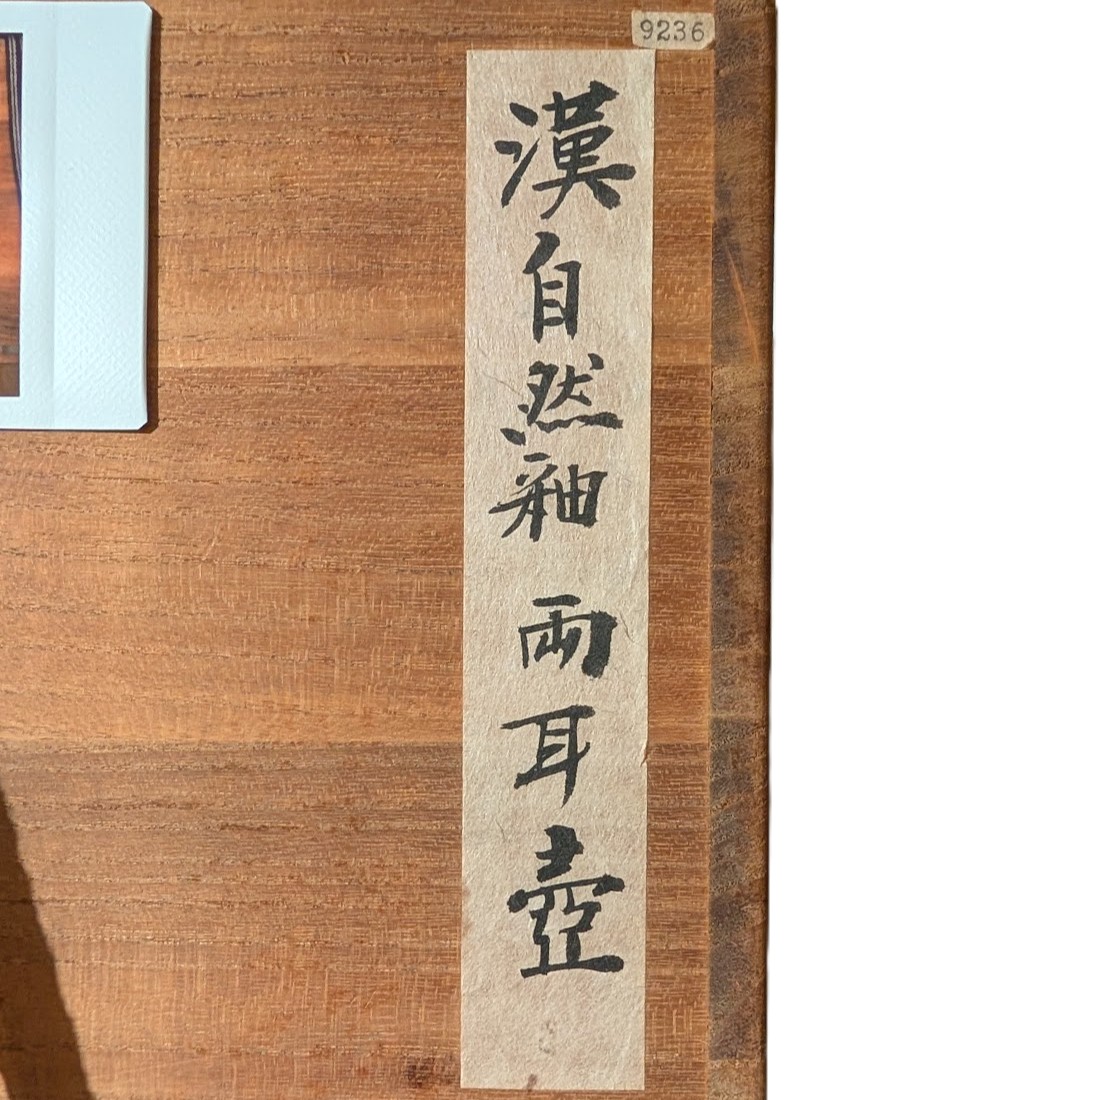 9236
漢自然釉 両耳壺